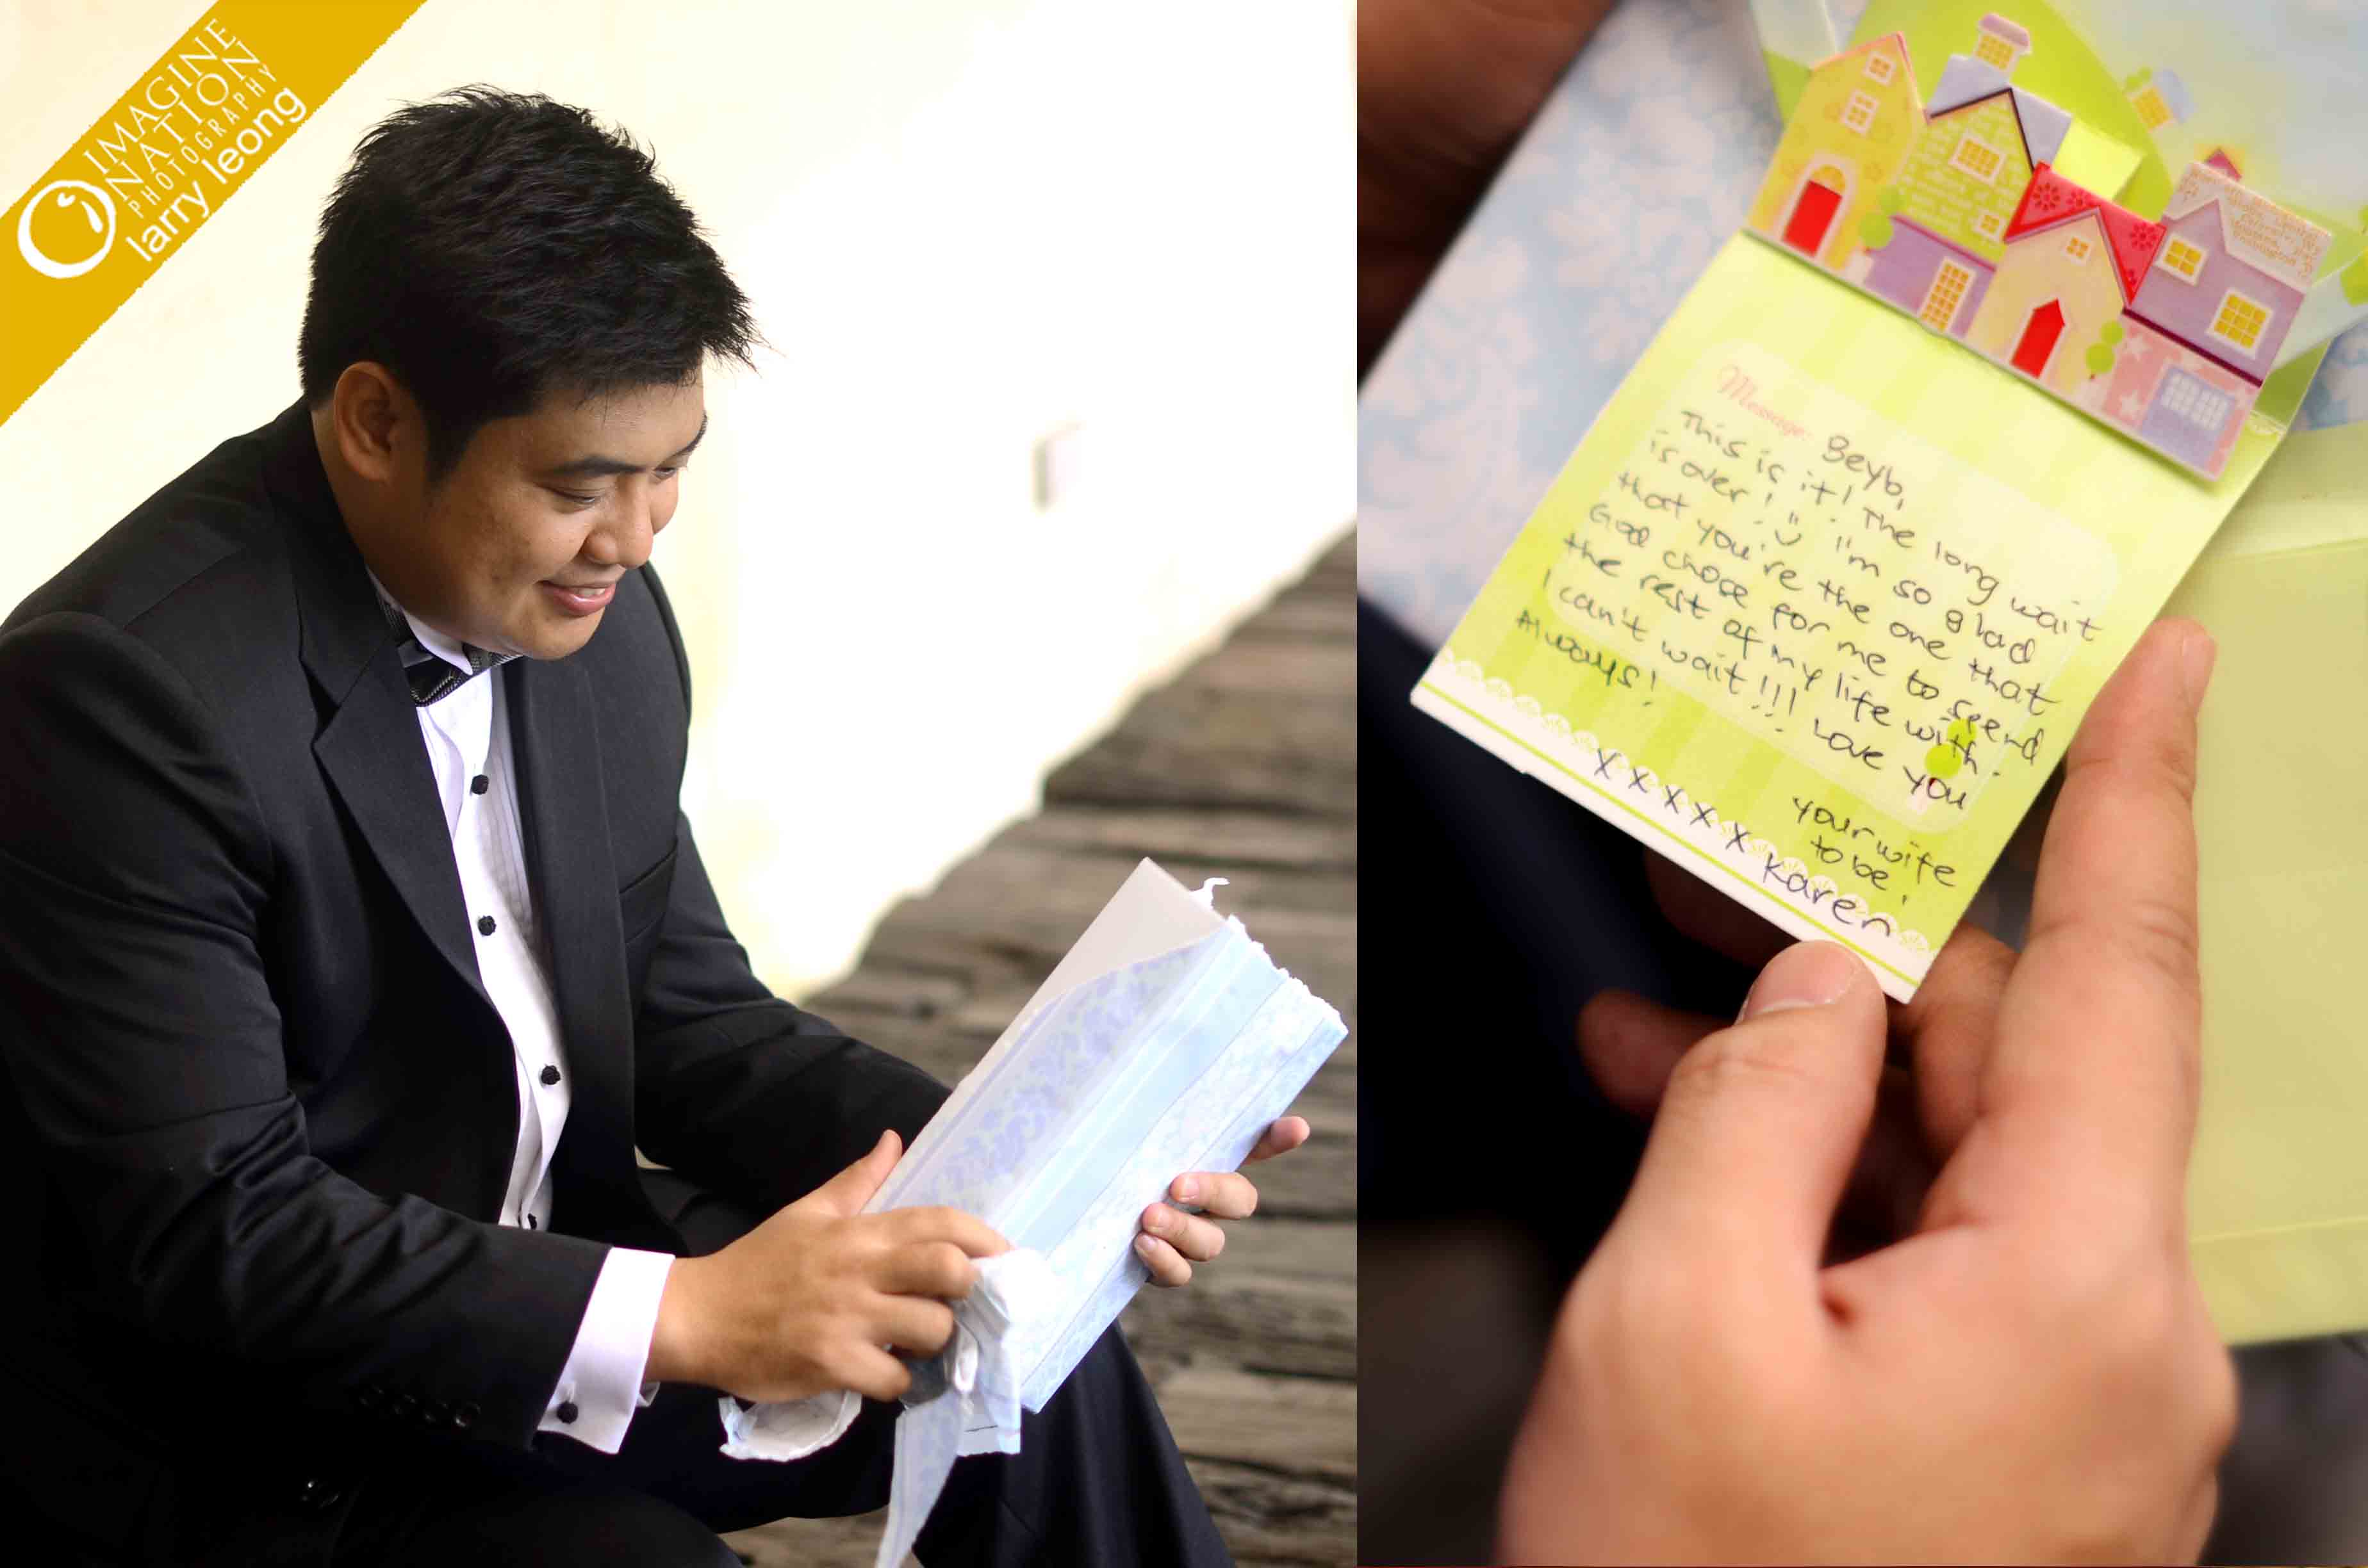 IMAGINE
NATION
PHOTOGRAPHY
larry leong
Message: Beyb,
This is it! The long wait
is over! I'm so glad
that you're the one that
God chose for me to spend
the rest of my life with.
I can't wait!!! Love you
Always!
your wife
to be!
x x x x x Karen